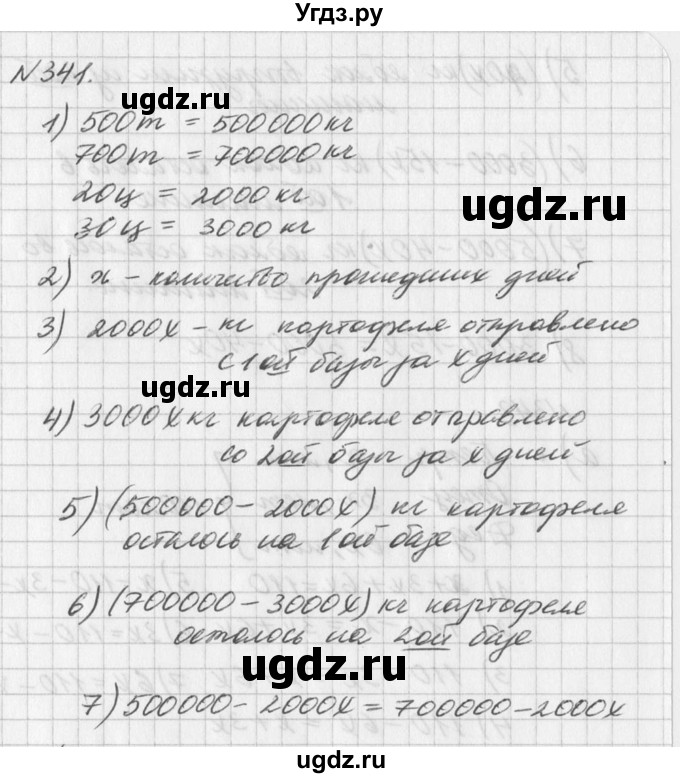 Угдз.ру
N341.
1) 500т = 500000кг
ugdz.ru
700т = 700000кг
20ц = 2000кг
ugdz.ru
30ц = 3000кг
2) x – количество прошедших дней
3) 2000x – кг картофеля отправлено
с 1ой базы за x дней
ugdz.ru
4) 3000x кг картофеля отправлено
со 2ой базы за x дней
ugdz.ru
5) (500000 – 2000x) кг картофеля
осталось на 1ой базе
ugdz.ru
6) (700000 – 3000x) кг картофеля
осталось на 2ой базе
ugdz.ru
7) 500000 – 2000x = 700000 – 2000x
ugdz.ru